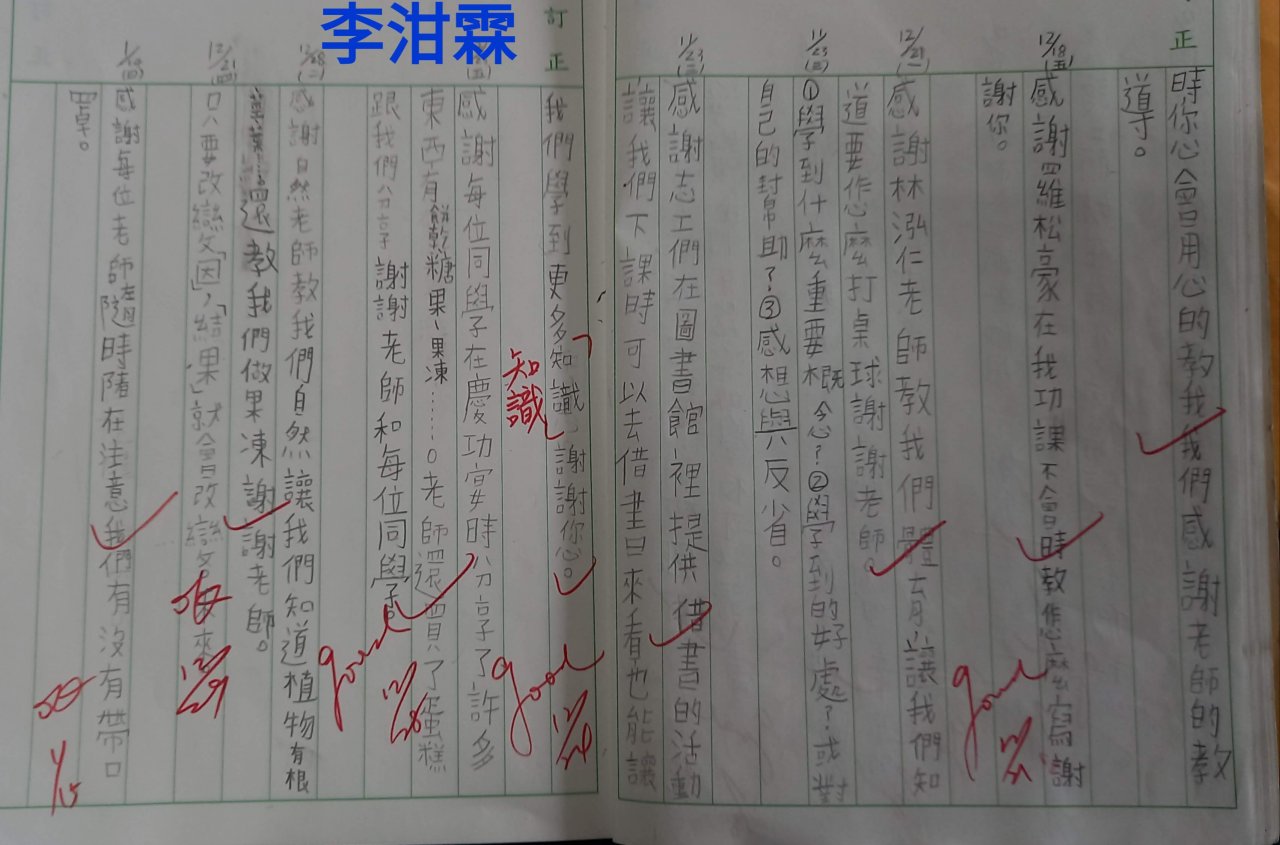 李泔霖
正
時你心會用心的教我我們感謝老師的教
導。
12/18(五)
感謝羅維松豪在我功課不會時教怎麼寫謝
謝你。
感謝林泓仁老師教我們體育讓我們知
道要怎麼打桌球謝謝老師。
11/23(三)
①學到什麼重要概念?②學到的好處?或對
自己的幫助?③感想與反省。
11/23(三)
感謝志工們在圖書館裡提供借書的活動
讓我們下課時可以去借書回來看也能讓
訂正
我們學到更多知識,謝謝你心。
知識
感謝每位同學在慶功宴時分享了許多
東西有餅乾糖果、果凍……。老師還買了蛋糕
跟我們分享 謝謝老師和每位同學。
12/28(二)
感謝自然老師教我們自然讓我們知道植物有根
莖葉……還教我們做果凍謝謝老師。
12/21(四)
只要改變「因」,「結果」就會改變
來
感謝每位老師隨時隨在注意我們有沒有帶口
罩。
good
12/21
good
good
12/28
12/29
1/15